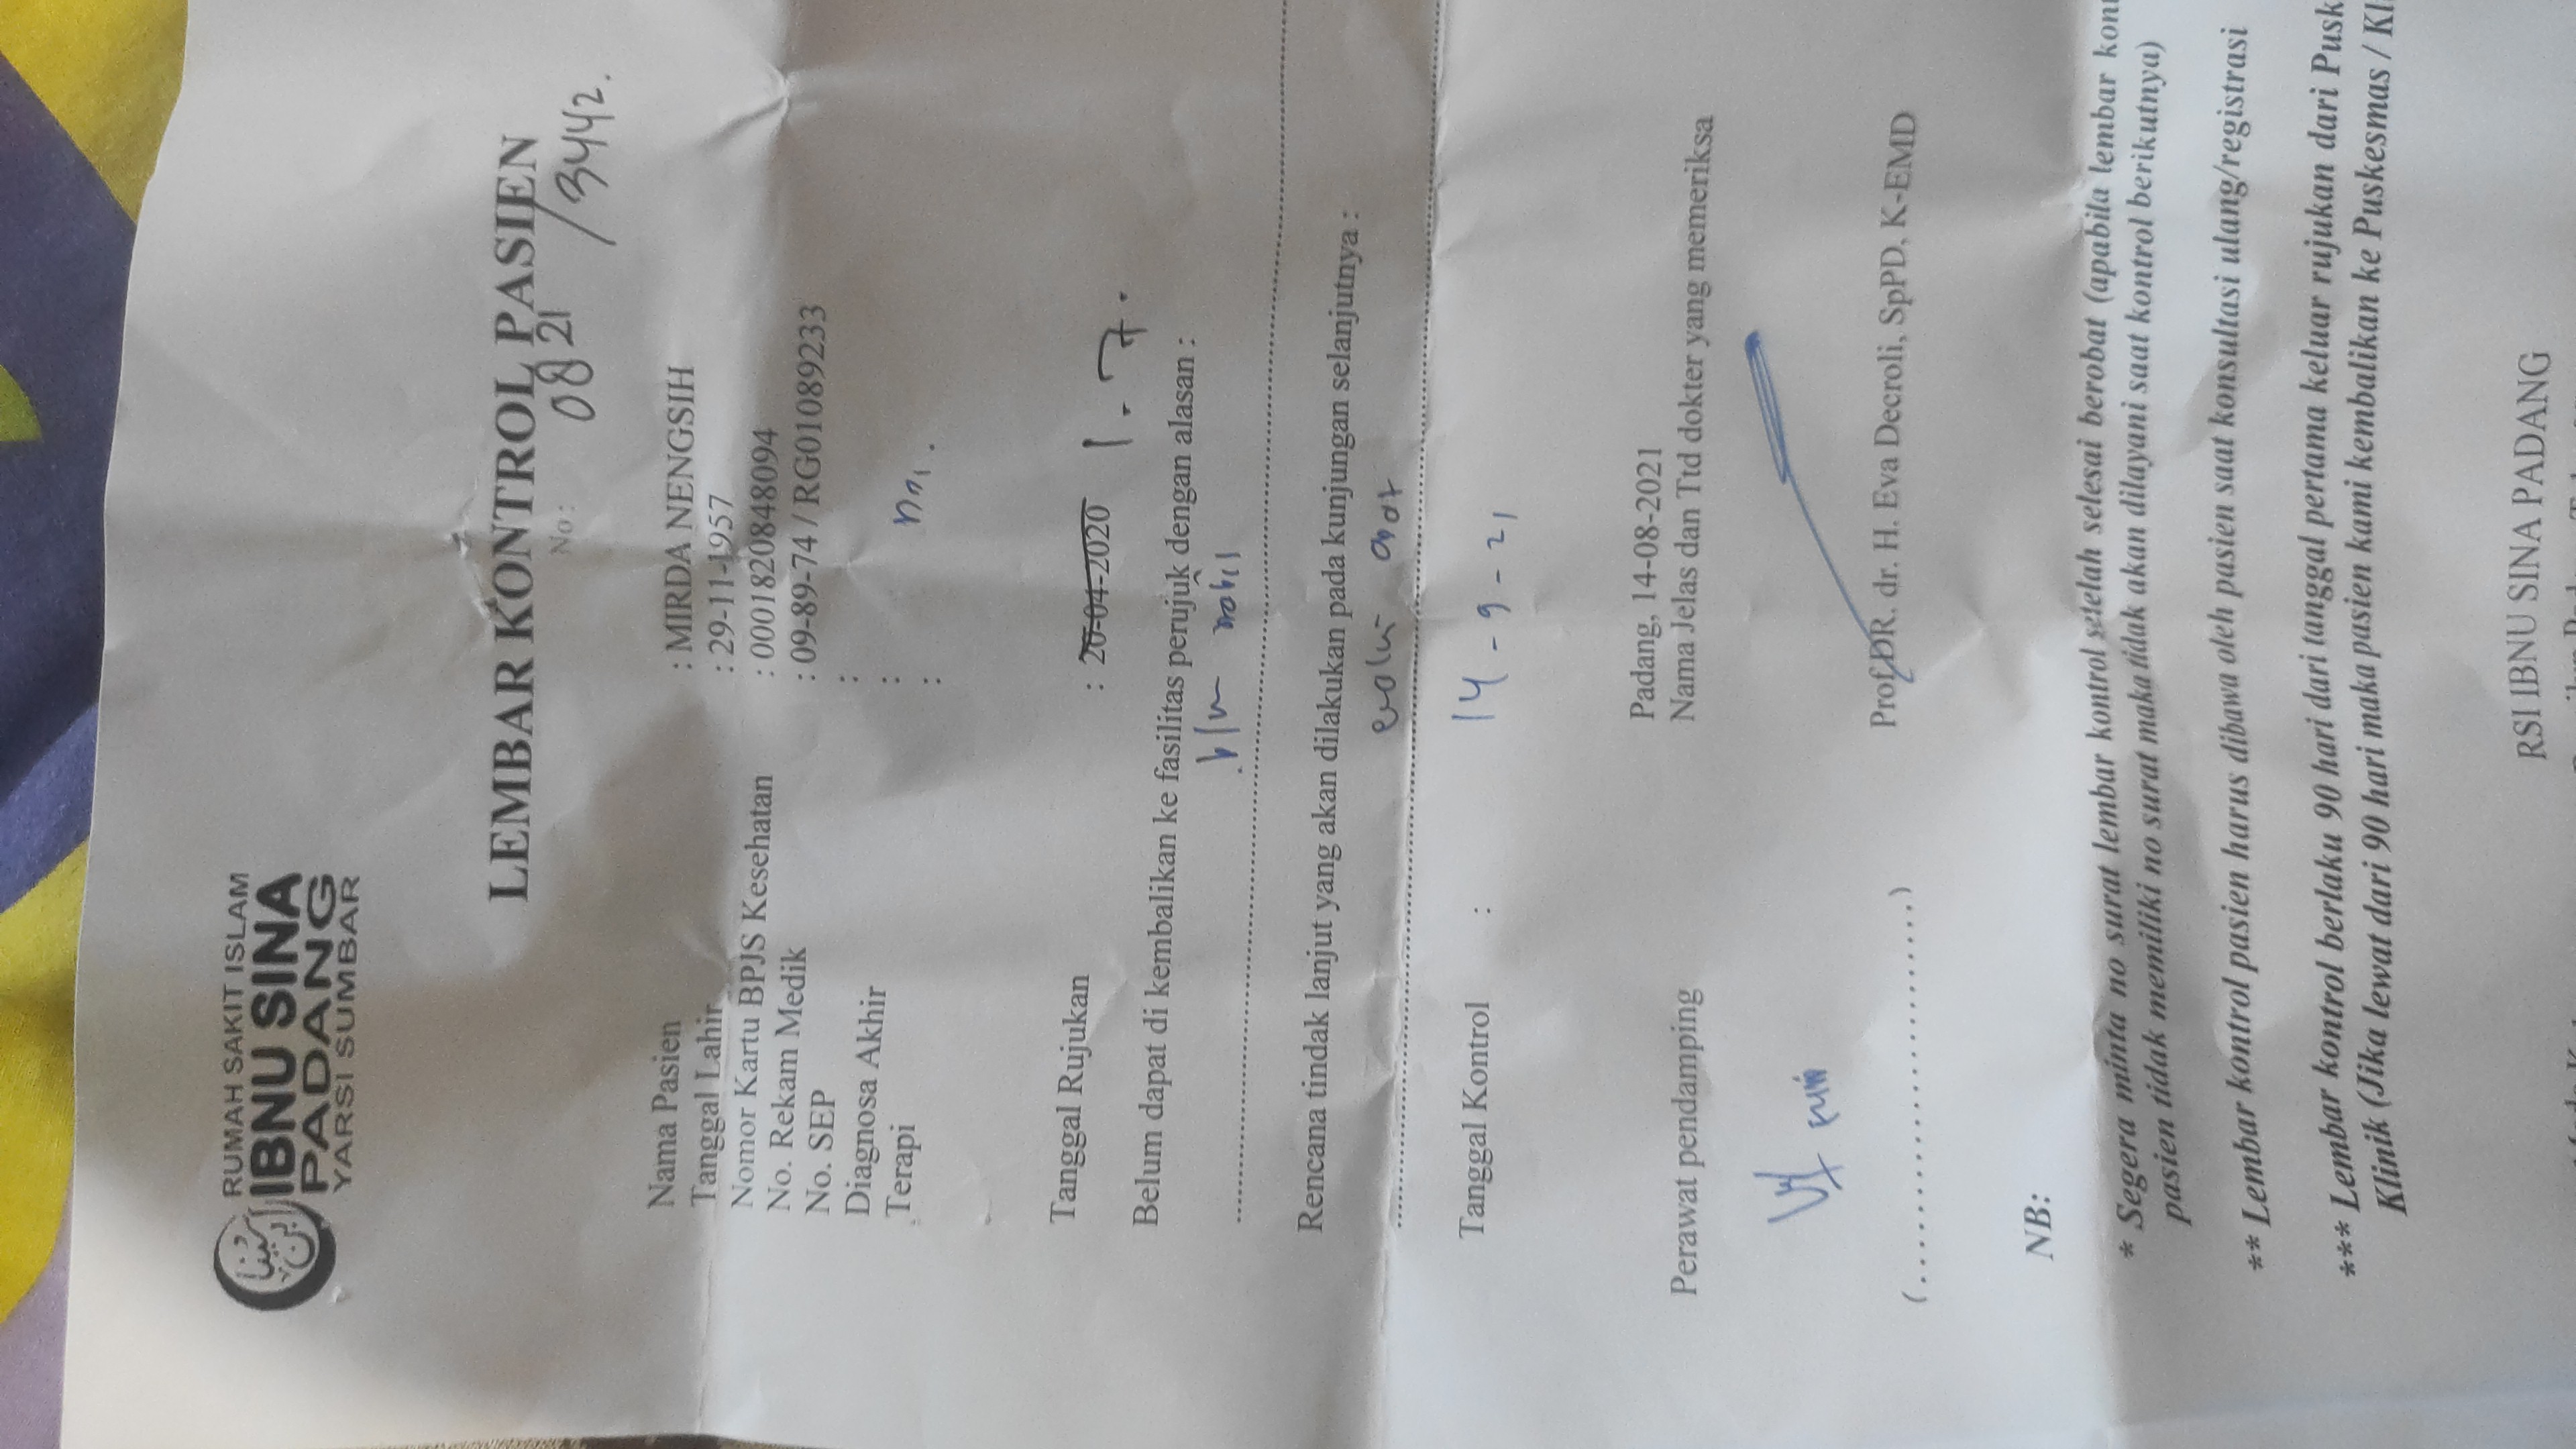 RUMAH SAKIT ISLAM
IBNU SINA
PADANG
YARSI SUMBAR
LEMBAR KONTROL PASIEN
No : 0821 / 3442.
Nama Pasien : MIRDA NENGSIH
Tanggal Lahir : 29-11-1957
Nomor Kartu BPJS Kesehatan : 0001820848094
No. Rekam Medik : 09-89-74 / RG01089233
No. SEP :
Diagnosa Akhir :
Terapi :
Tanggal Rujukan : 20-04-2020 1.7.
Belum dapat di kembalikan ke fasilitas perujuk dengan alasan :
Rencana tindak lanjut yang akan dilakukan pada kunjungan selanjutnya :
obat
Tanggal Kontrol : 14-9-21
Padang, 14-08-2021
Perawat pendamping
Nama Jelas dan Ttd dokter yang memeriksa
(........................)
Prof.DR. dr. H. Eva Decroli, SpPD, K-EMD
NB:
* Segera minta no surat lembar kontrol setelah selesai berobat (apabila lembar
pasien tidak memiliki no surat maka tidak akan dilayani saat kontrol berikutnya)
** Lembar kontrol pasien harus dibawa oleh pasien saat konsultasi ulang/registrasi
*** Lembar kontrol berlaku 90 hari dari tanggal pertama keluar rujukan dari
Klinik (Jika lewat dari 90 hari maka pasien kami kembalikan ke Puskesmas /
RSI IBNU SINA PADANG